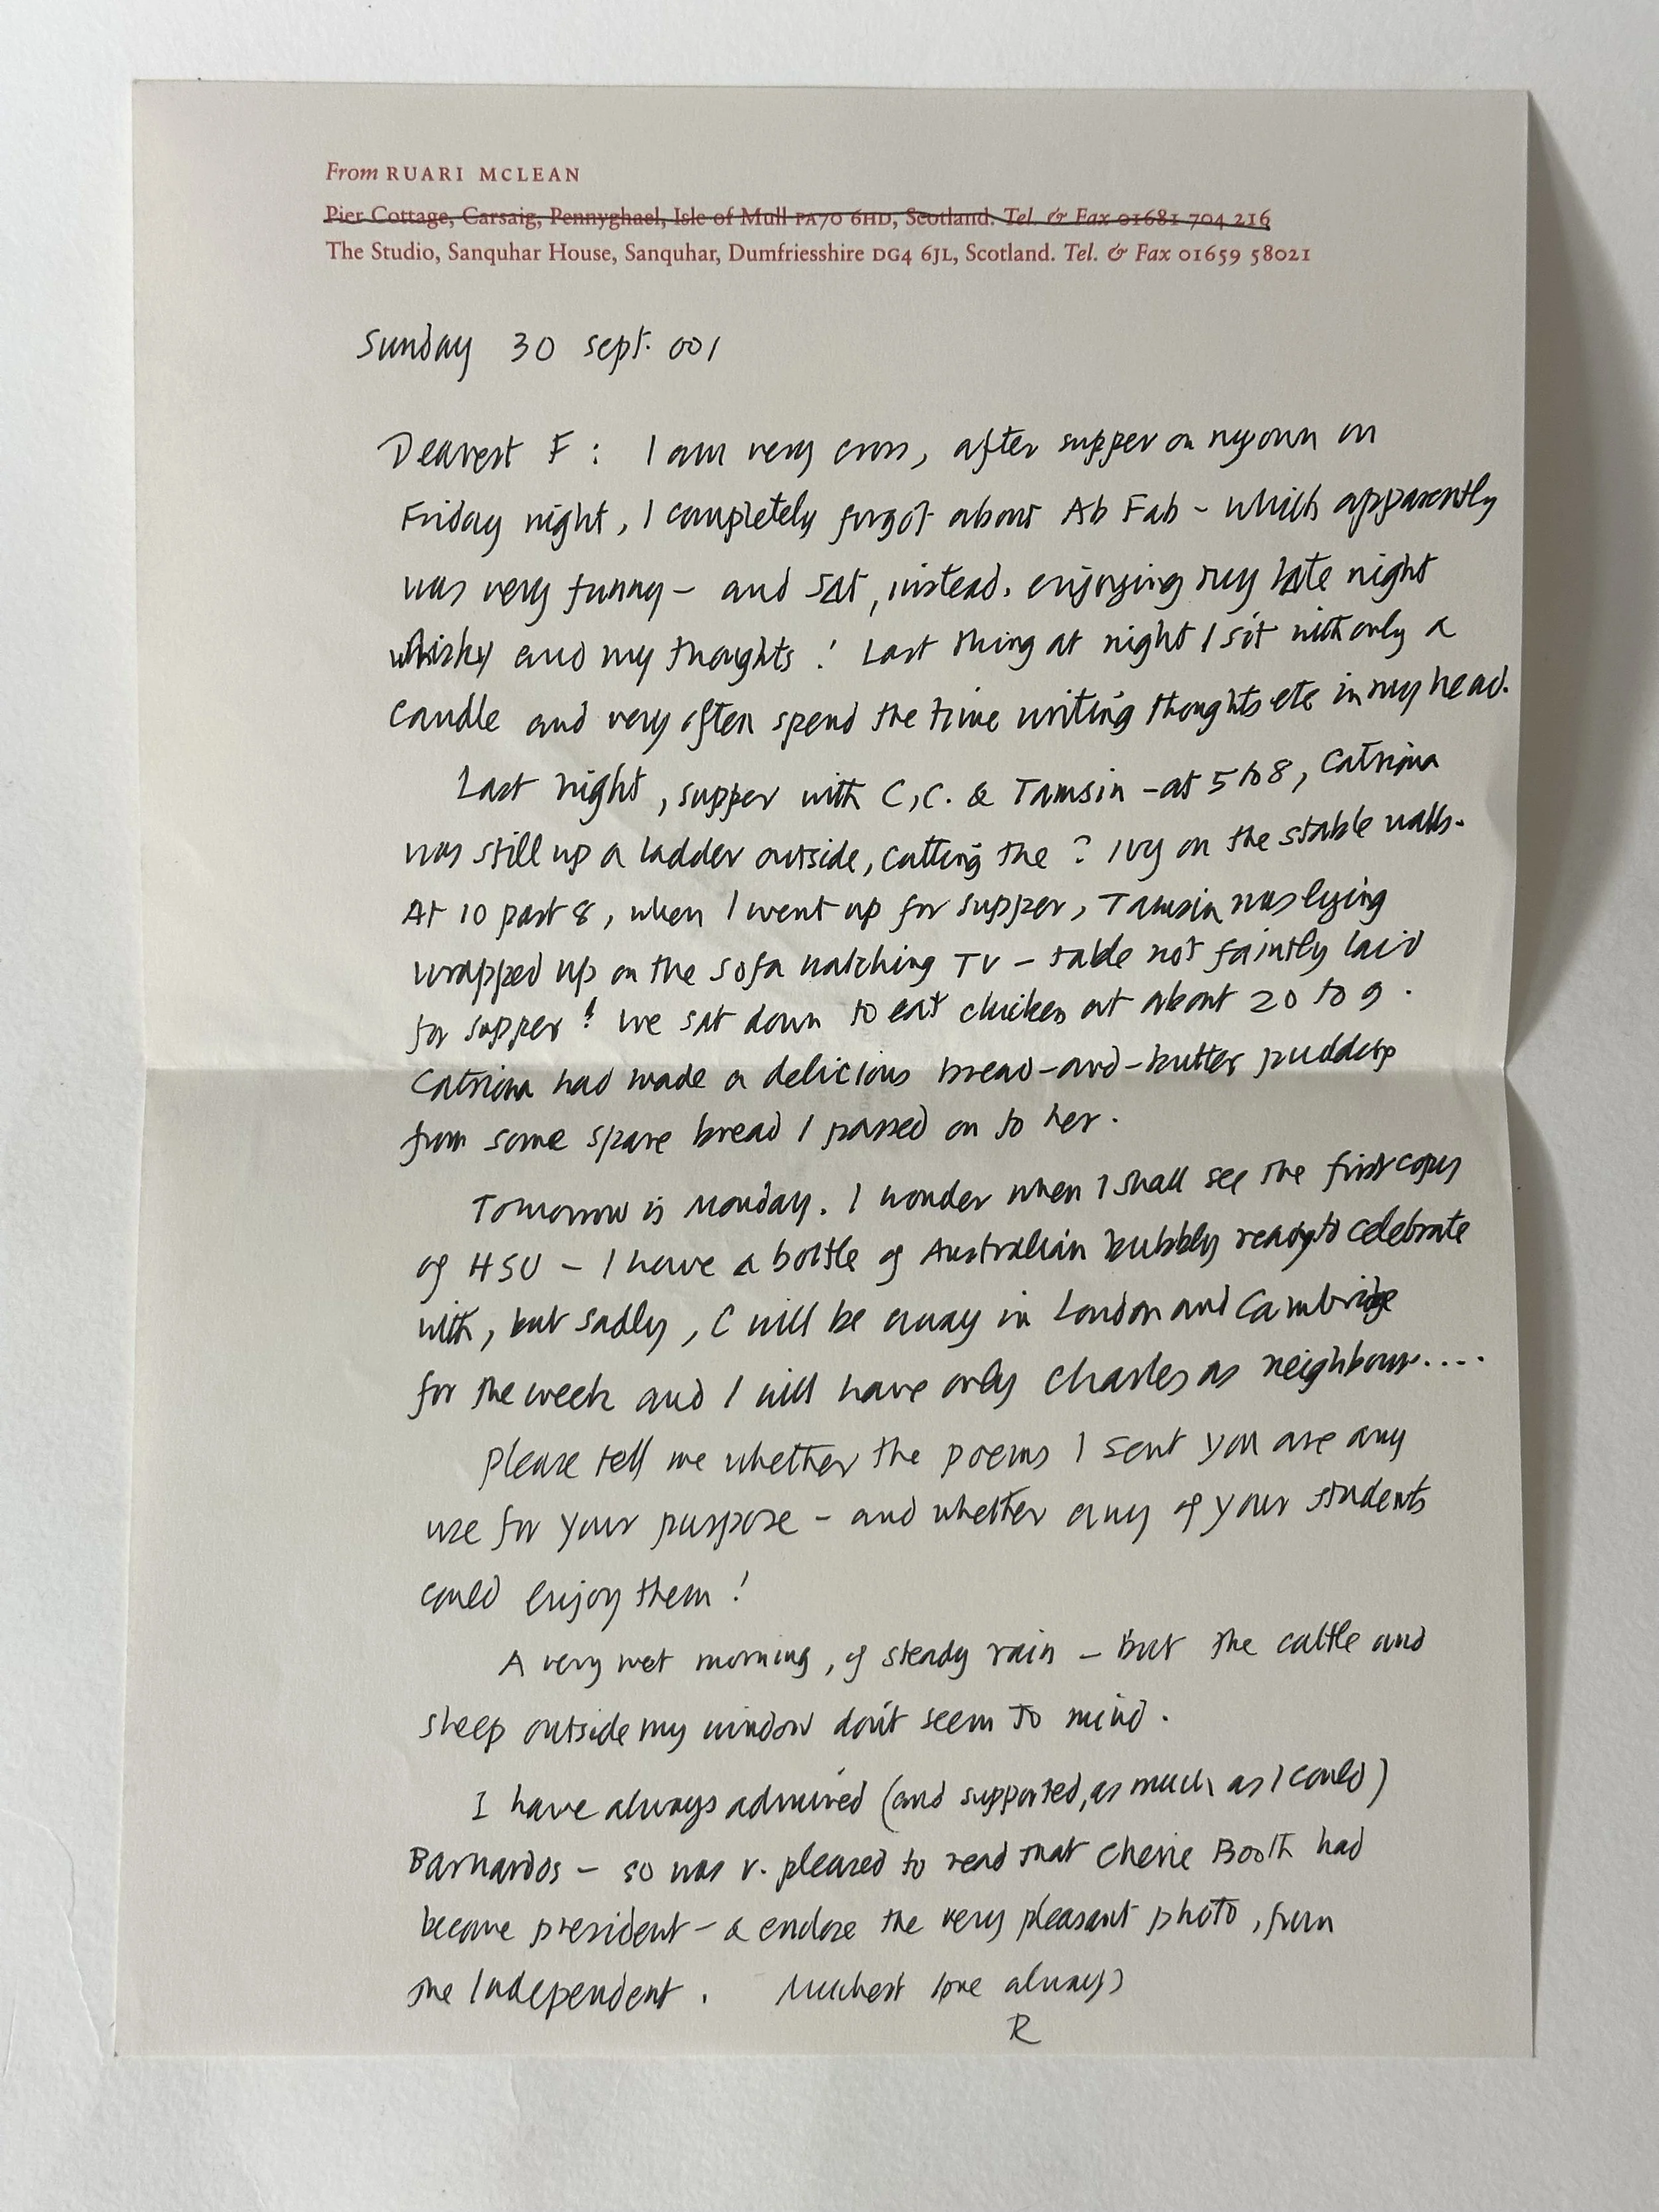 From RUARI MCLEAN
Pier Cottage, Carsaig, Pennyghael, Isle of Mull PA70 6HD, Scotland. Tel. & Fax 01681 704 216
The Studio, Sanquhar House, Sanquhar, Dumfriesshire DG4 6JL, Scotland. Tel. & Fax 01659 58021
Sunday 30 Sept. 001
Dearest F : I am very cross, after supper on my own on
Friday night, I completely forgot about Ab Fab - which apparently
was very funny - and sat, instead, enjoying my late night
whisky and my thoughts ! Last thing at night I sit with only a
candle and very often spend the time writing thoughts etc in my head.
Last night, supper with C, C. & Tamsin - at 5 to 8, Catriona
was still up a ladder outside, cutting the ? ivy on the stable walls.
At 10 past 8, when I went up for supper, Tamsin was lying
wrapped up on the sofa watching TV - table not faintly laid
for supper ! We sat down to eat chicken at about 20 to 9.
Catriona had made a delicious bread-and-butter pudding
from some spare bread I passed on to her.
Tomorrow is Monday. I wonder when I shall see the first copy
of HSU - I have a bottle of Australian bubbly ready to celebrate
with, but sadly, C will be away in London and Cambridge
for the week and I will have only Charles as neighbour....
Please tell me whether the poems I sent you are any
use for your purpose - and whether any of your students
could enjoy them !
A very wet morning, of steady rain - but the cattle and
sheep outside my window don't seem to mind.
I have always admired (and supported, as much as I could)
Barnardos - so was v. pleased to read that Cherie Booth had
become president - & enclose the very pleasant photo, from
the Independent. Muchest love always
R